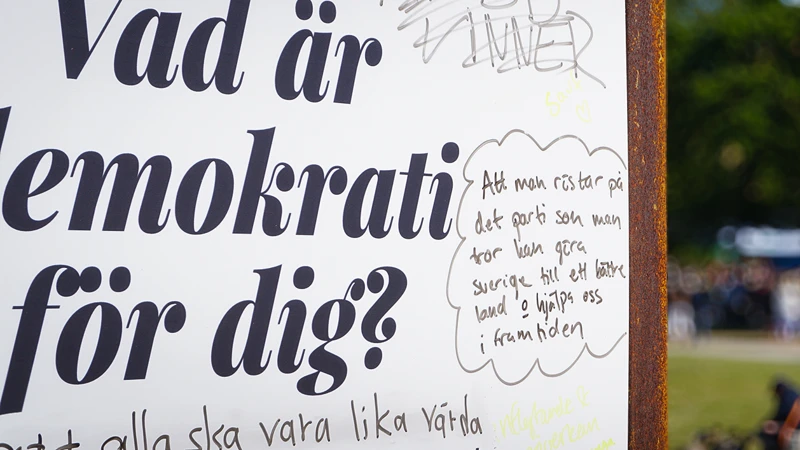 Vad är
demokrati
för dig?
VINNER
Att man röstar på
det parti som man
tror kan göra
sverige till ett bättre
land o hjälpa oss
i framtiden
att alla ska vara lika värda